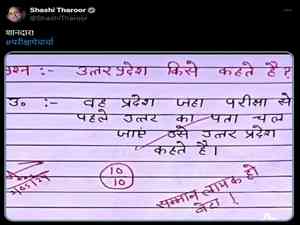 Shashi Tharoor
@ShashiTharoor
शानदार!
#परीक्षापेचर्चा
प्रश्न :- उत्तरप्रदेश किसे कहते है?
उ० :- वह प्रदेश जहा परीक्षा से
पहले उत्तर का पता चल
जाएं उसे उत्तर प्रदेश
कहते है।
10
10
सम्मान लायक हो
बेटा!